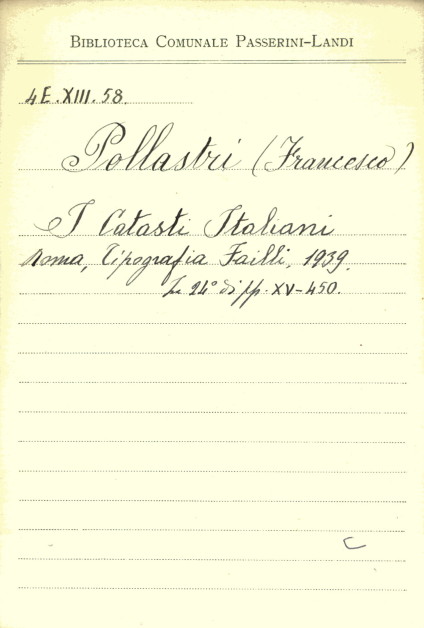 BIBLIOTECA COMUNALE PASSERINI-LANDI
4E.XIII.58.
Pollastri (Francesco)
I Catasti Italiani
Roma, Tipografia Failli, 1939.
In 24° di pp. XV-450.
C